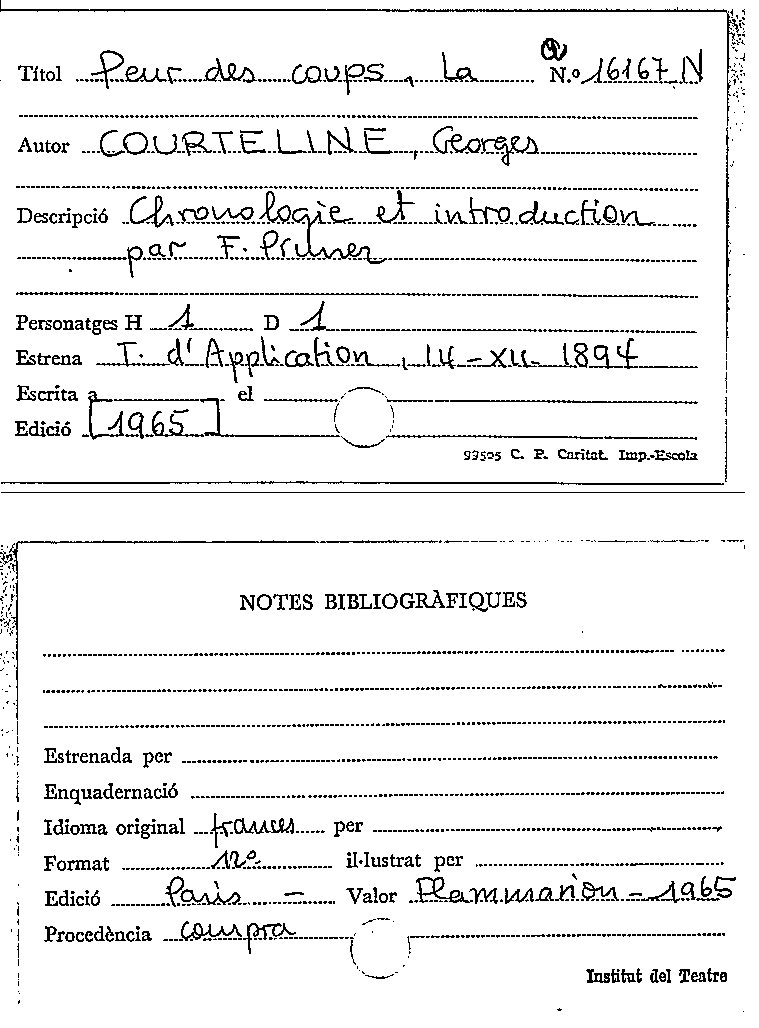 Títol Peur des coups, La N.º 16167 N
Autor COURTELINE, Georges
Descripció Chronologie et introduction
par F. Pruner
Personatges H 1 D 1
Estrena T. d'Application, 14-XII-1894
Escrita a el
Edició [1965]
99505 C. P. Caritat. Imp.-Escola
NOTES BIBLIOGRÀFIQUES
Estrenada per
Enquadernació
Idioma original frances per
Format 12º il·lustrat per
Edició Paris - Valor Flammarion - 1965
Procedència compra
Institut del Teatre